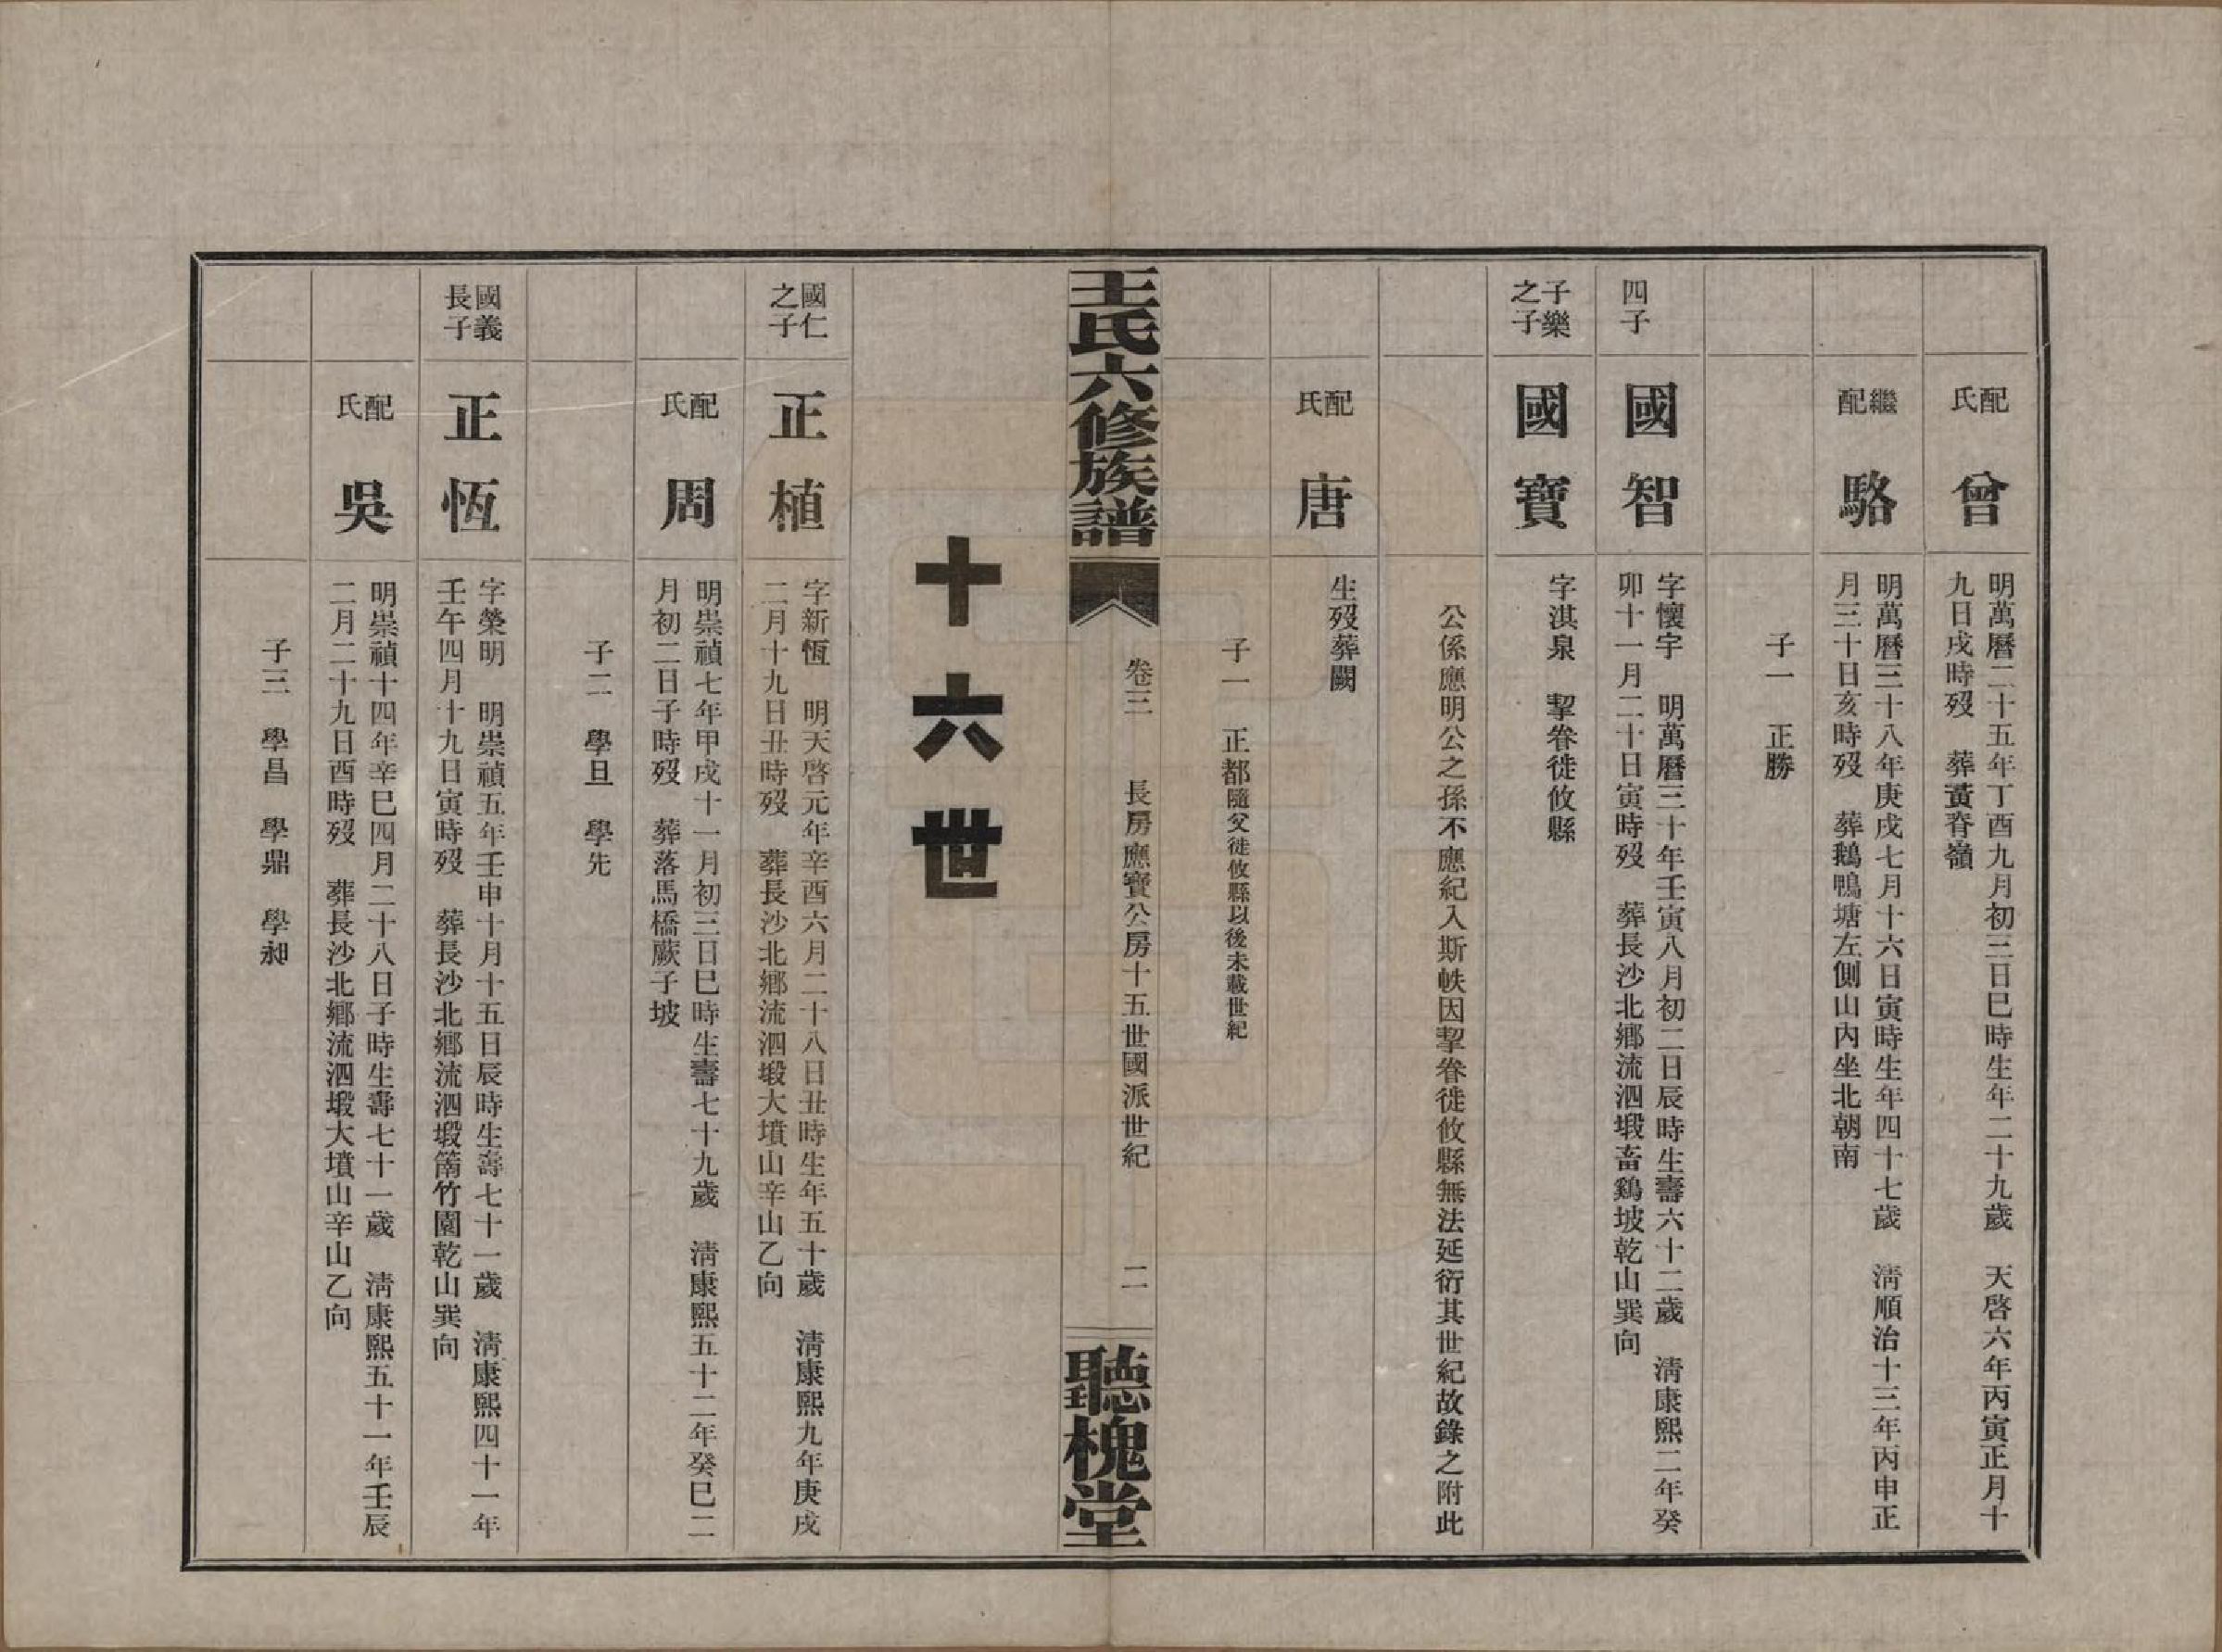 配氏
曾
明萬曆二十五年丁酉九月初三日巳時生年二十九歲　天啓六年丙寅正月十
九日戌時歿　葬黃脊嶺
繼配
駱
明萬曆三十八年庚戌七月十六日寅時生年四十七歲　清順治十三年丙申正
月三十日亥時歿　葬鵝鴨塘左側山內坐北朝南
子一　正勝
四子
國智
字懷宇　明萬曆三十年壬寅八月初二日辰時生壽六十二歲　清康熙二年癸
卯十一月二十日寅時歿　葬長沙北鄉流泗塅畜鷄坡乾山巽向
子樂
之子
國寶
字淇泉　挈眷徙攸縣
公係應明公之孫不應紀入斯帙因挈眷徙攸縣無法延衍其世紀故錄之附此
配氏
唐
生歿葬闕
子一　正都隨父徙攸縣以後未載世紀
王氏六修族譜
卷三　長房應寶公房十五世國派世紀　二
聽槐堂
十六世
國仁
之子
正植
字新恆　明天啓元年辛酉六月二十八日丑時生年五十歲　清康熙九年庚戌
二月十九日丑時歿　葬長沙北鄉流泗塅大墳山辛山乙向
配氏
周
明崇禎七年甲戌十一月初三日巳時生壽七十九歲　清康熙五十二年癸巳二
月初二日子時歿　葬落馬橋蕨子坡
子二　學旦　學先
國義
長子
正恆
字榮明　明崇禎五年壬申十月十五日辰時生壽七十一歲　清康熙四十一年
壬午四月十九日寅時歿　葬長沙北鄉流泗塅筩竹園乾山巽向
配氏
吳
明崇禎十四年辛巳四月二十八日子時生壽七十一歲　清康熙五十一年壬辰
二月二十九日酉時歿　葬長沙北鄉流泗塅大墳山辛山乙向
子三　學昌　學鼎　學昶